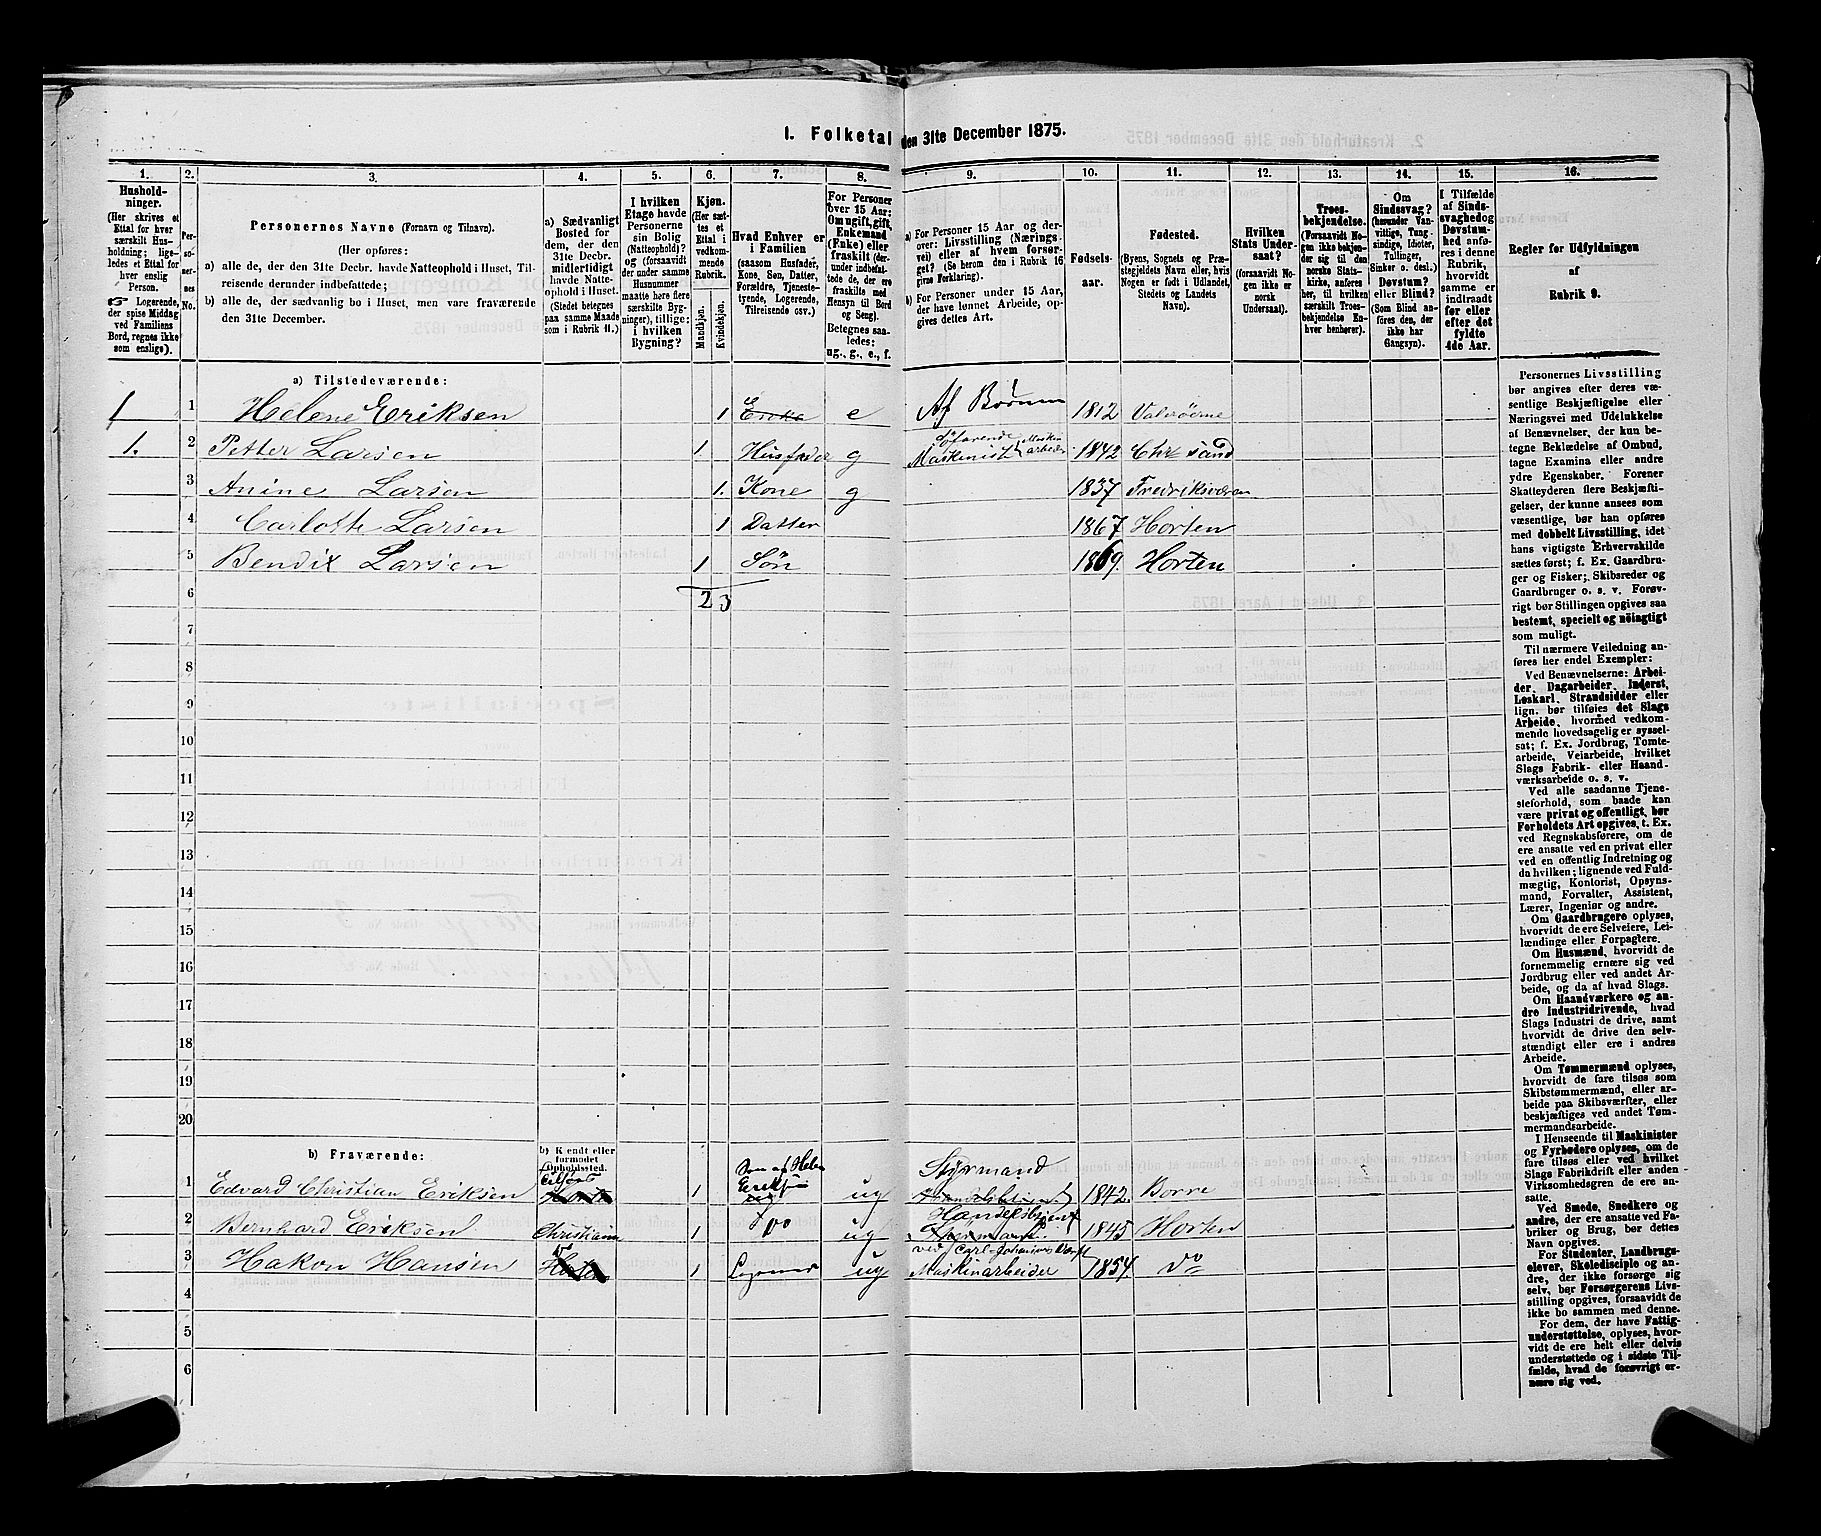 1. Folketal den 31te December 1875.
1.
Hushold-
ninger.
(Her skrives et
Ettal for hver
særskilt Hus-
holdning; lige-
ledes et Ettal for
hver enslig
Person.
Logerende,
der spise Middag
ved Familiens
Bord, regnes ikke
som enslige).
2.
Per-
so-
ner-
nes
No.
3.
Personernes Navne (Fornavn og Tilnavn).
(Her opføres:
a) alle de, der den 31te Decbr. havde Natteophold i Huset, Til-
reisende derunder indbefattede;
b) alle de, der sædvanlig bo i Huset, men vare fraværende
den 31te December.
4.
a) Sædvanligt
Bosted for
dem, der den
31te Decbr.
midlertidigt
havde Natte-
ophold i Huset.
(Stedet betegnes
paa samme Maade
som i Rubrik 11.)
5.
I hvilken
Etage havde
Personerne
sin Bolig
(Natteophold)?
og (forsaavidt
der under samme
Husnummer
maatte høre flere
særskilte Byg-
ninger), tillige:
i hvilken
Bygning?
6.
Kjøn.
(Her sæt-
tes et
Ettal i
vedkom-
mende
Rubrik.
Mandkjøn.
Kvindekjøn.
7.
Hvad Enhver er
i Familien
(saasom Husfader,
Kone, Søn, Datter,
Forældre, Tjeneste-
tyende, Logerende,
Tilreisende osv.)
8.
For Personer
over 15 Aar:
Om ugift, gift,
Enkemand
(Enke) eller
fraskilt (der-
under indbefat-
tede de, der ere
fraskilte med
Hensyn til Bord
og Seng).
Betegnes saa-
ledes:
ug., g., e., f.
9.
a) For Personer 15 Aar og der-
over: Livsstilling (Nærings-
vei) eller af hvem forsør-
get? (Se herom den i Rubrik 16
givne Forklaring).
b) For Personer under 15 Aar,
der have lønnet Arbeide, op-
gives dettes Art.
10.
Fødsels-
aar.
11.
Fødested.
(Byens, Sognets og Præ-
stegjeldets Navn eller, hvis
Nogen er født i Udlandet,
Stedets og Landets
Navn).
12.
Hvilken
Stats Under-
saat?
(forsaavidt No-
gen ikke er
norsk
Undersaat).
13.
Troes-
bekjendelse.
(Forsaavidt No-
gen ikke bekjen-
der sig til den
norske Stats-
kirke, anføres
her, til hvilken
særskilt Troes-
bekjendelse En-
hver henhører).
14.
Om
Sindssvag?
(herunder Van-
vittige, Tung-
sindige, Idioter,
Tullinger,
Sinker o. desl.)
Døvstum?
eller Blind?
(Som Blind an-
føres den, der
ikke har
Gangsyn).
15.
I Tilfælde
af Sinds-
svaghed og
Døvstum-
hed anfø-
res i denne
Rubrik,
hvorvidt
samme er
indtraadt
før eller
efter det
fyldte
4de Aar.
16.
Regler for Udfyldningen
af
Rubrik 9.
a) Tilstedeværende:
1 1 Helene Eriksen 1 Enke e Af Børnene 1812 Valsrøerne
1. 2 Petter Larsen 1 Husfader g Søfarende Maskinist Maskinarbeider 1842 Chr sand
3 Anine Larsen 1. Kone g 1837 Fredriksværn
4 Carlotte Larsen 1 Datter 1867 Horten
5 Bendix Larsen 1 Søn 1869. Horten
6 2 3
7
8
9
10
11
12
13
14
15
16
17
18
19
20
b) Fraværende:
b) Kendt eller
formodet
Opholdssted.
1 Edvard Christian Eriksen Horten 1 Søn af Helene Eriksen ug Styrmand 1842. Borre
2 Bernhard Eriksen Christiania 1 do ug Handelsbetjent 1845 Horten
3 Hakon Hansen Horten 1 Logerend ug ved Carl-Johansværns Værft Maskinarbeider 1854. do
4
5
6
Personernes Livsstilling
bør angives efter deres væ-
sentlige Beskjæftigelse eller
Næringsvei med Udelukkelse
af Benævnelser, der kun be-
tegne Beklædelse af Ombud,
tagne Examina eller andre
ydre Egenskaber. Forener
Skatteyderen flere Beskjæfti-
gelser, der kunne ansees som
væsentlige, bør han opføres
med dobbelt Livsstilling, idet
hans vigtigste Erhvervskilde
sættes først; f. Ex. Gaardbru-
ger og Fisker; Skibsreder og
Gaardbruger o. s. v. Forøv-
rigt bør Stillingen opgives saa
bestemt, specielt og nöiagtigt
som muligt.
Til nærmere Veiledning an-
føres her endel Exempler:
Ved Benævnelserne: Arbei-
der, Dagarbeider, Inderst,
Løskarl, Strandsidder eller
lign. bør tilføies det Slags
Arbeide, hvormed vedkom-
mende hovedsagelig er syssel-
sat; f. Ex. Jordbrug, Tomte-
arbeide, Veiarbeide, hvilket
Slags Fabrik- eller Haand-
værksarbeide o. s. v.
Ved alle saadanne Tjene-
steforhold, som baade kan
være privat og offentligt, bør
Forholdets Art opgives, t. Ex.
ved Regnskabsførere, om de
ere ansatte ved en privat eller
ved en offentlig Indretning og
da hvilken; lignende ved Fuld-
mægtig, Kontorist, Opsyns-
mand, Forvalter, Assistent,
Lærer, Ingeniør og andre.
Om Gaardbrugere oplyses,
hvorvidt de ere Selveiere, Lei-
lændinge eller Forpagtere.
Om Husmænd, hvorvidt de
fornemmelig ernære sig ved
Jordbrug eller ved andet Ar-
beide, og da af hvad Slags.
Om Haandværkere og an-
dre Industridrivende, hvad
Slags Industri de drive, samt
hvorvidt de drive den selv-
stændigt eller ere i andres
Arbeide.
Om Tømmermænd oplyses,
hvorvidt de fare tilsøs som
Skibstømmermænd, eller ar-
beide paa Skibsværfter, eller
beskjæftiges ved andet Tøm-
mermandsarbeide.
I Henseende til Maskinister
og Fyrbødere oplyses, om de
fare tilsøs eller ved hvilket
Slags Fabrikdrift eller anden
Virksomhedsgren de ere an-
satte.
Ved Smede, Snedkere og
andre, der ere ansatte ved Fa-
briker og Brug, bør dettes
Navn opgives.
For Studenter, Landbrugs-
elever, Skoledisciple og an-
dre, der ikke forsørge sig
selv, bør Forsørgerens Livs-
stilling opgives, forsaavidt de
ikke bo sammen med denne.
For dem, der have Fattig-
understøttelse, oplyses, hvor-
vidt de ere helt eller delvis
understøttede og i sidste Til-
fælde, hvad de forøvrigt er-
nære sig ved.